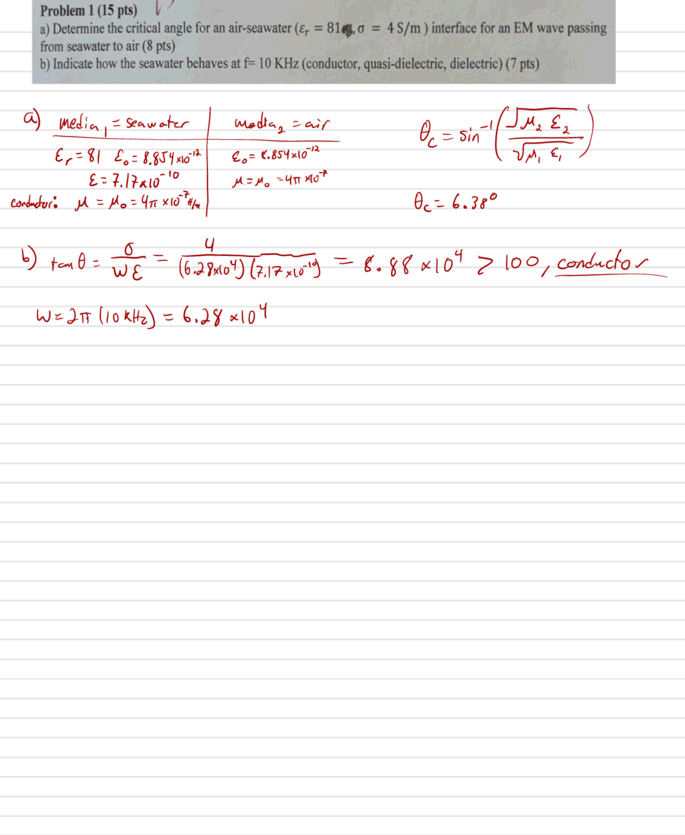 Problem 1 (15 pts)
a) Determine the critical angle for an air-seawater (εr = 81, σ = 4 S/m ) interface for an EM wave passing
from seawater to air (8 pts)
b) Indicate how the seawater behaves at f= 10 KHz (conductor, quasi-dielectric, dielectric) (7 pts)
a) media₁ = seawater
εr = 81 ε₀ = 8.854 x10⁻¹²
ε = 7.17 x10⁻¹⁰
conductor: μ = μ₀ = 4π x10⁻⁷ H/m
media₂ = air
ε₀ = 8.854 x10⁻¹²
μ = μ₀ = 4π x10⁻⁷
θc = sin⁻¹ (√μ₂ ε₂ / √μ₁ ε₁)
θc = 6.38°
b) tan θ = σ / Wε = 4 / (6.28x10⁴) (7.17 x10⁻¹⁰) = 8.88 x10⁴ > 100, conductor
W = 2π (10 kHz) = 6.28 x10⁴